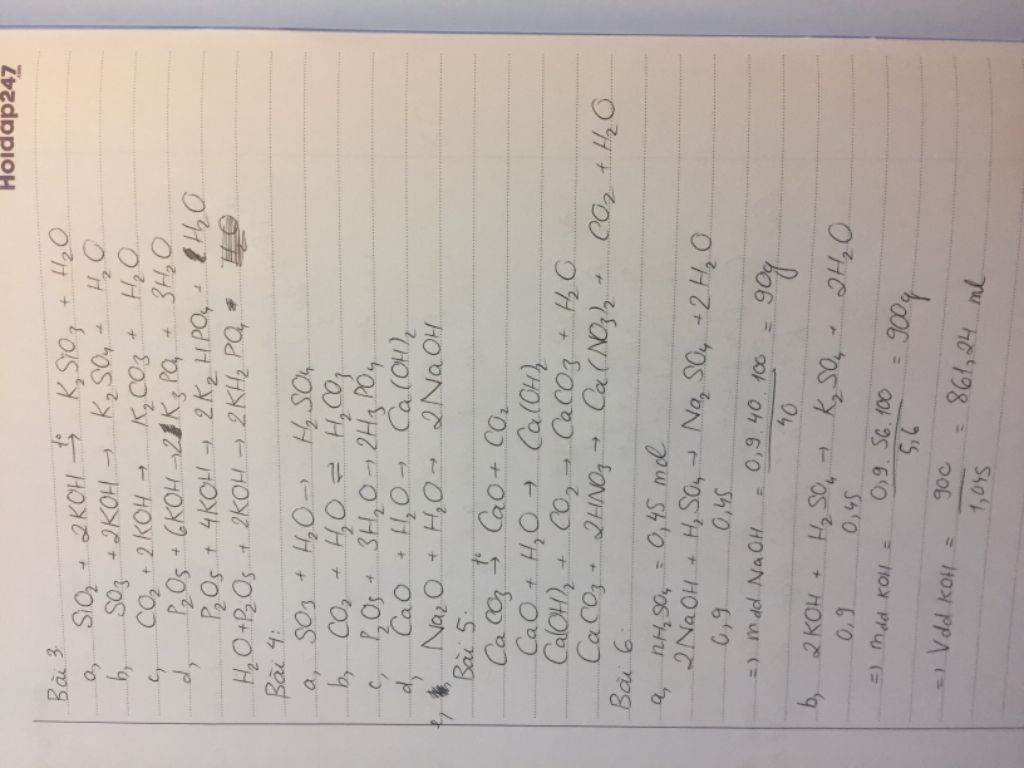 Hoidap247
.com
Bài 3:
a, SiO₂ + 2KOH →t° K₂SiO₃ + H₂O
b, SO₃ + 2KOH → K₂SO₄ + H₂O
c, CO₂ + 2KOH → K₂CO₃ + H₂O
d, P₂O₅ + 6KOH → 2K₃PO₄ + 3H₂O
P₂O₅ + 4KOH → 2K₂HPO₄ + H₂O
H₂O + P₂O₅ + 2KOH → 2KH₂PO₄
Bài 4:
a, SO₃ + H₂O → H₂SO₄
b, CO₂ + H₂O ⇌ H₂CO₃
c, P₂O₅ + 3H₂O → 2H₃PO₄
d, CaO + H₂O → Ca(OH)₂
e, Na₂O + H₂O → 2NaOH
Bài 5:
CaCO₃ →t° CaO + CO₂
CaO + H₂O → Ca(OH)₂
Ca(OH)₂ + CO₂ → CaCO₃ + H₂O
CaCO₃ + 2HNO₃ → Ca(NO₃)₂ + CO₂ + H₂O
Bài 6:
a, nH₂SO₄ = 0,45 mol
2NaOH + H₂SO₄ → Na₂SO₄ + 2H₂O
0,9 0,45
=> mdd NaOH = 0,9.40.100 / 40 = 90g
b, 2KOH + H₂SO₄ → K₂SO₄ + 2H₂O
0,9 0,45
=> mdd KOH = 0,9.56.100 / 5,6 = 900g
=> Vdd KOH = 900 / 1,045 = 861,24 ml